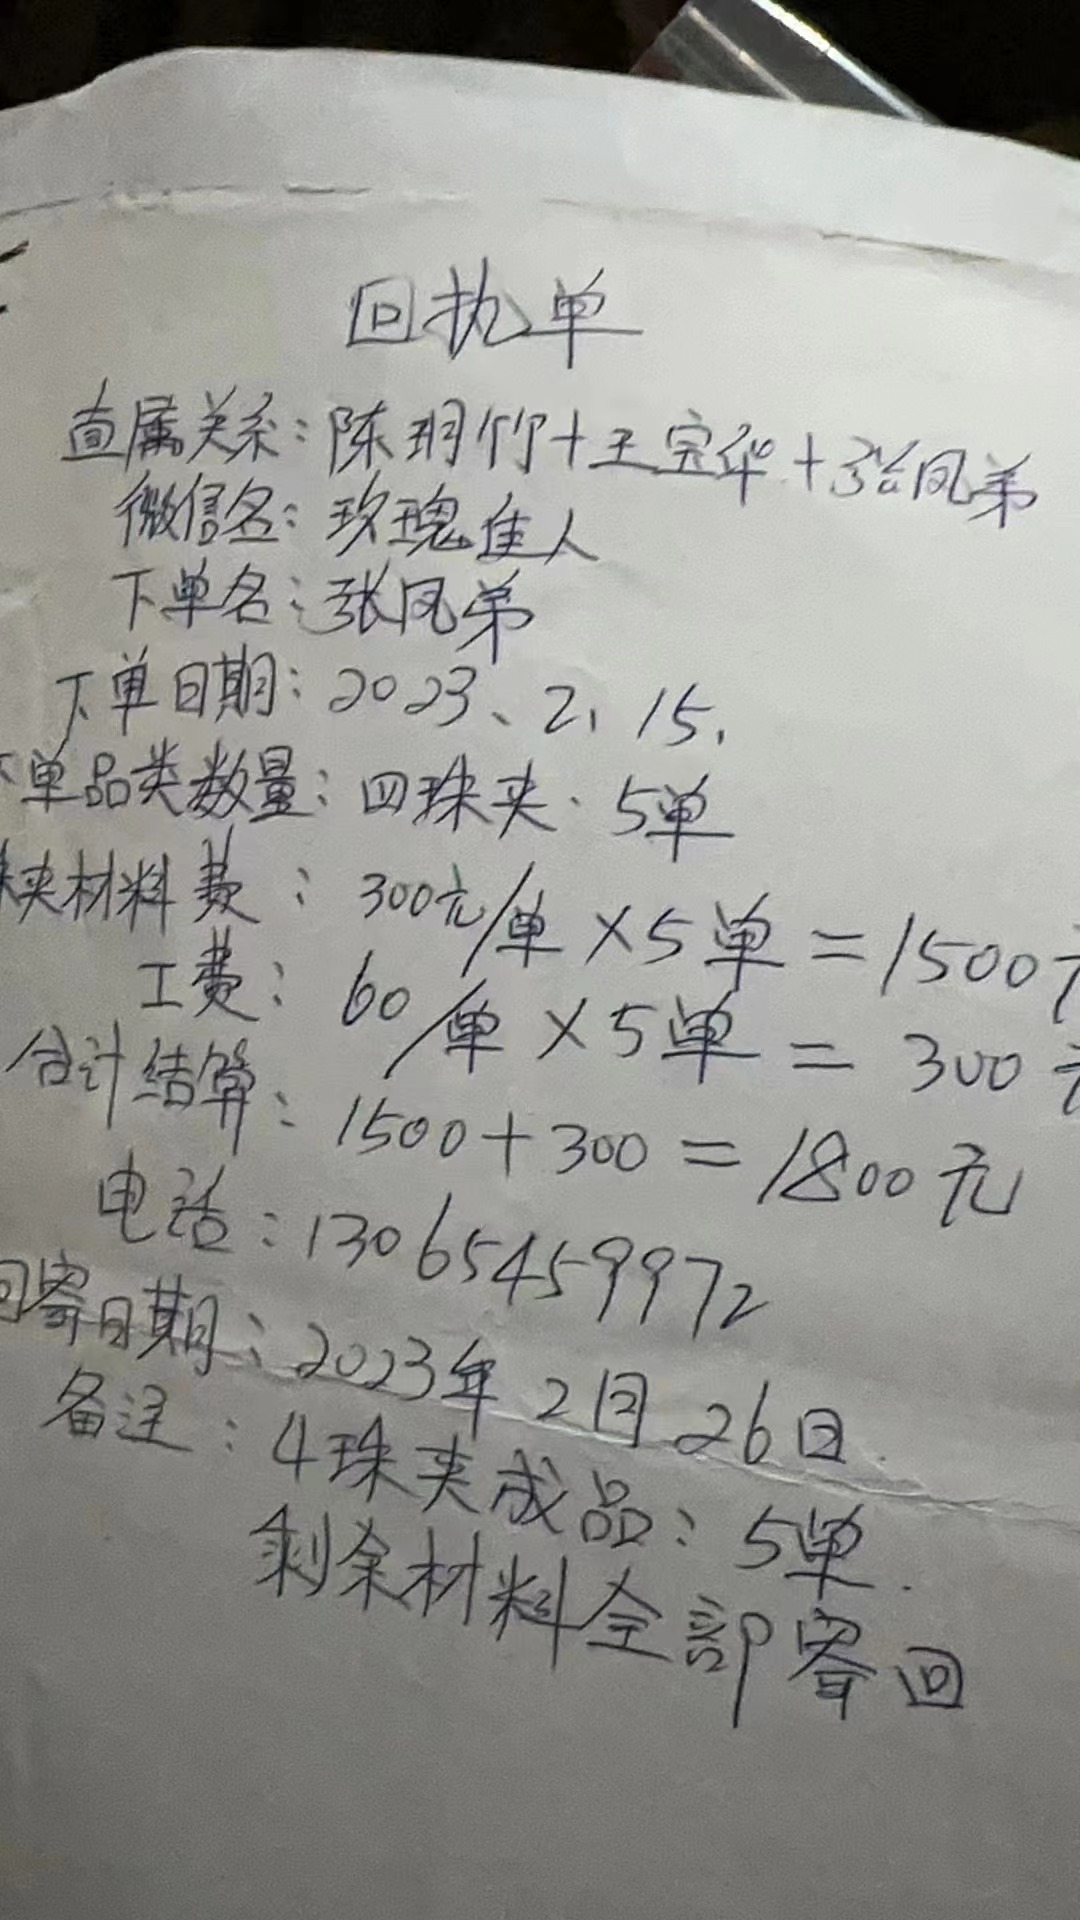 回执单
直属关系：陈玥竹+王宗华+张凤弟
微信名：玫瑰佳人
下单名：张凤弟
下单日期：2023、2、15、
单品类数量：四珠夹·5单
夹材料费：300元/单×5单=1500
工费：60/单×5单=300
合计结算：1500+300=1800元
电话：13065459972
回寄日期：2023年2月26日
备注：4珠夹成品：5单.
剩余材料全部寄回